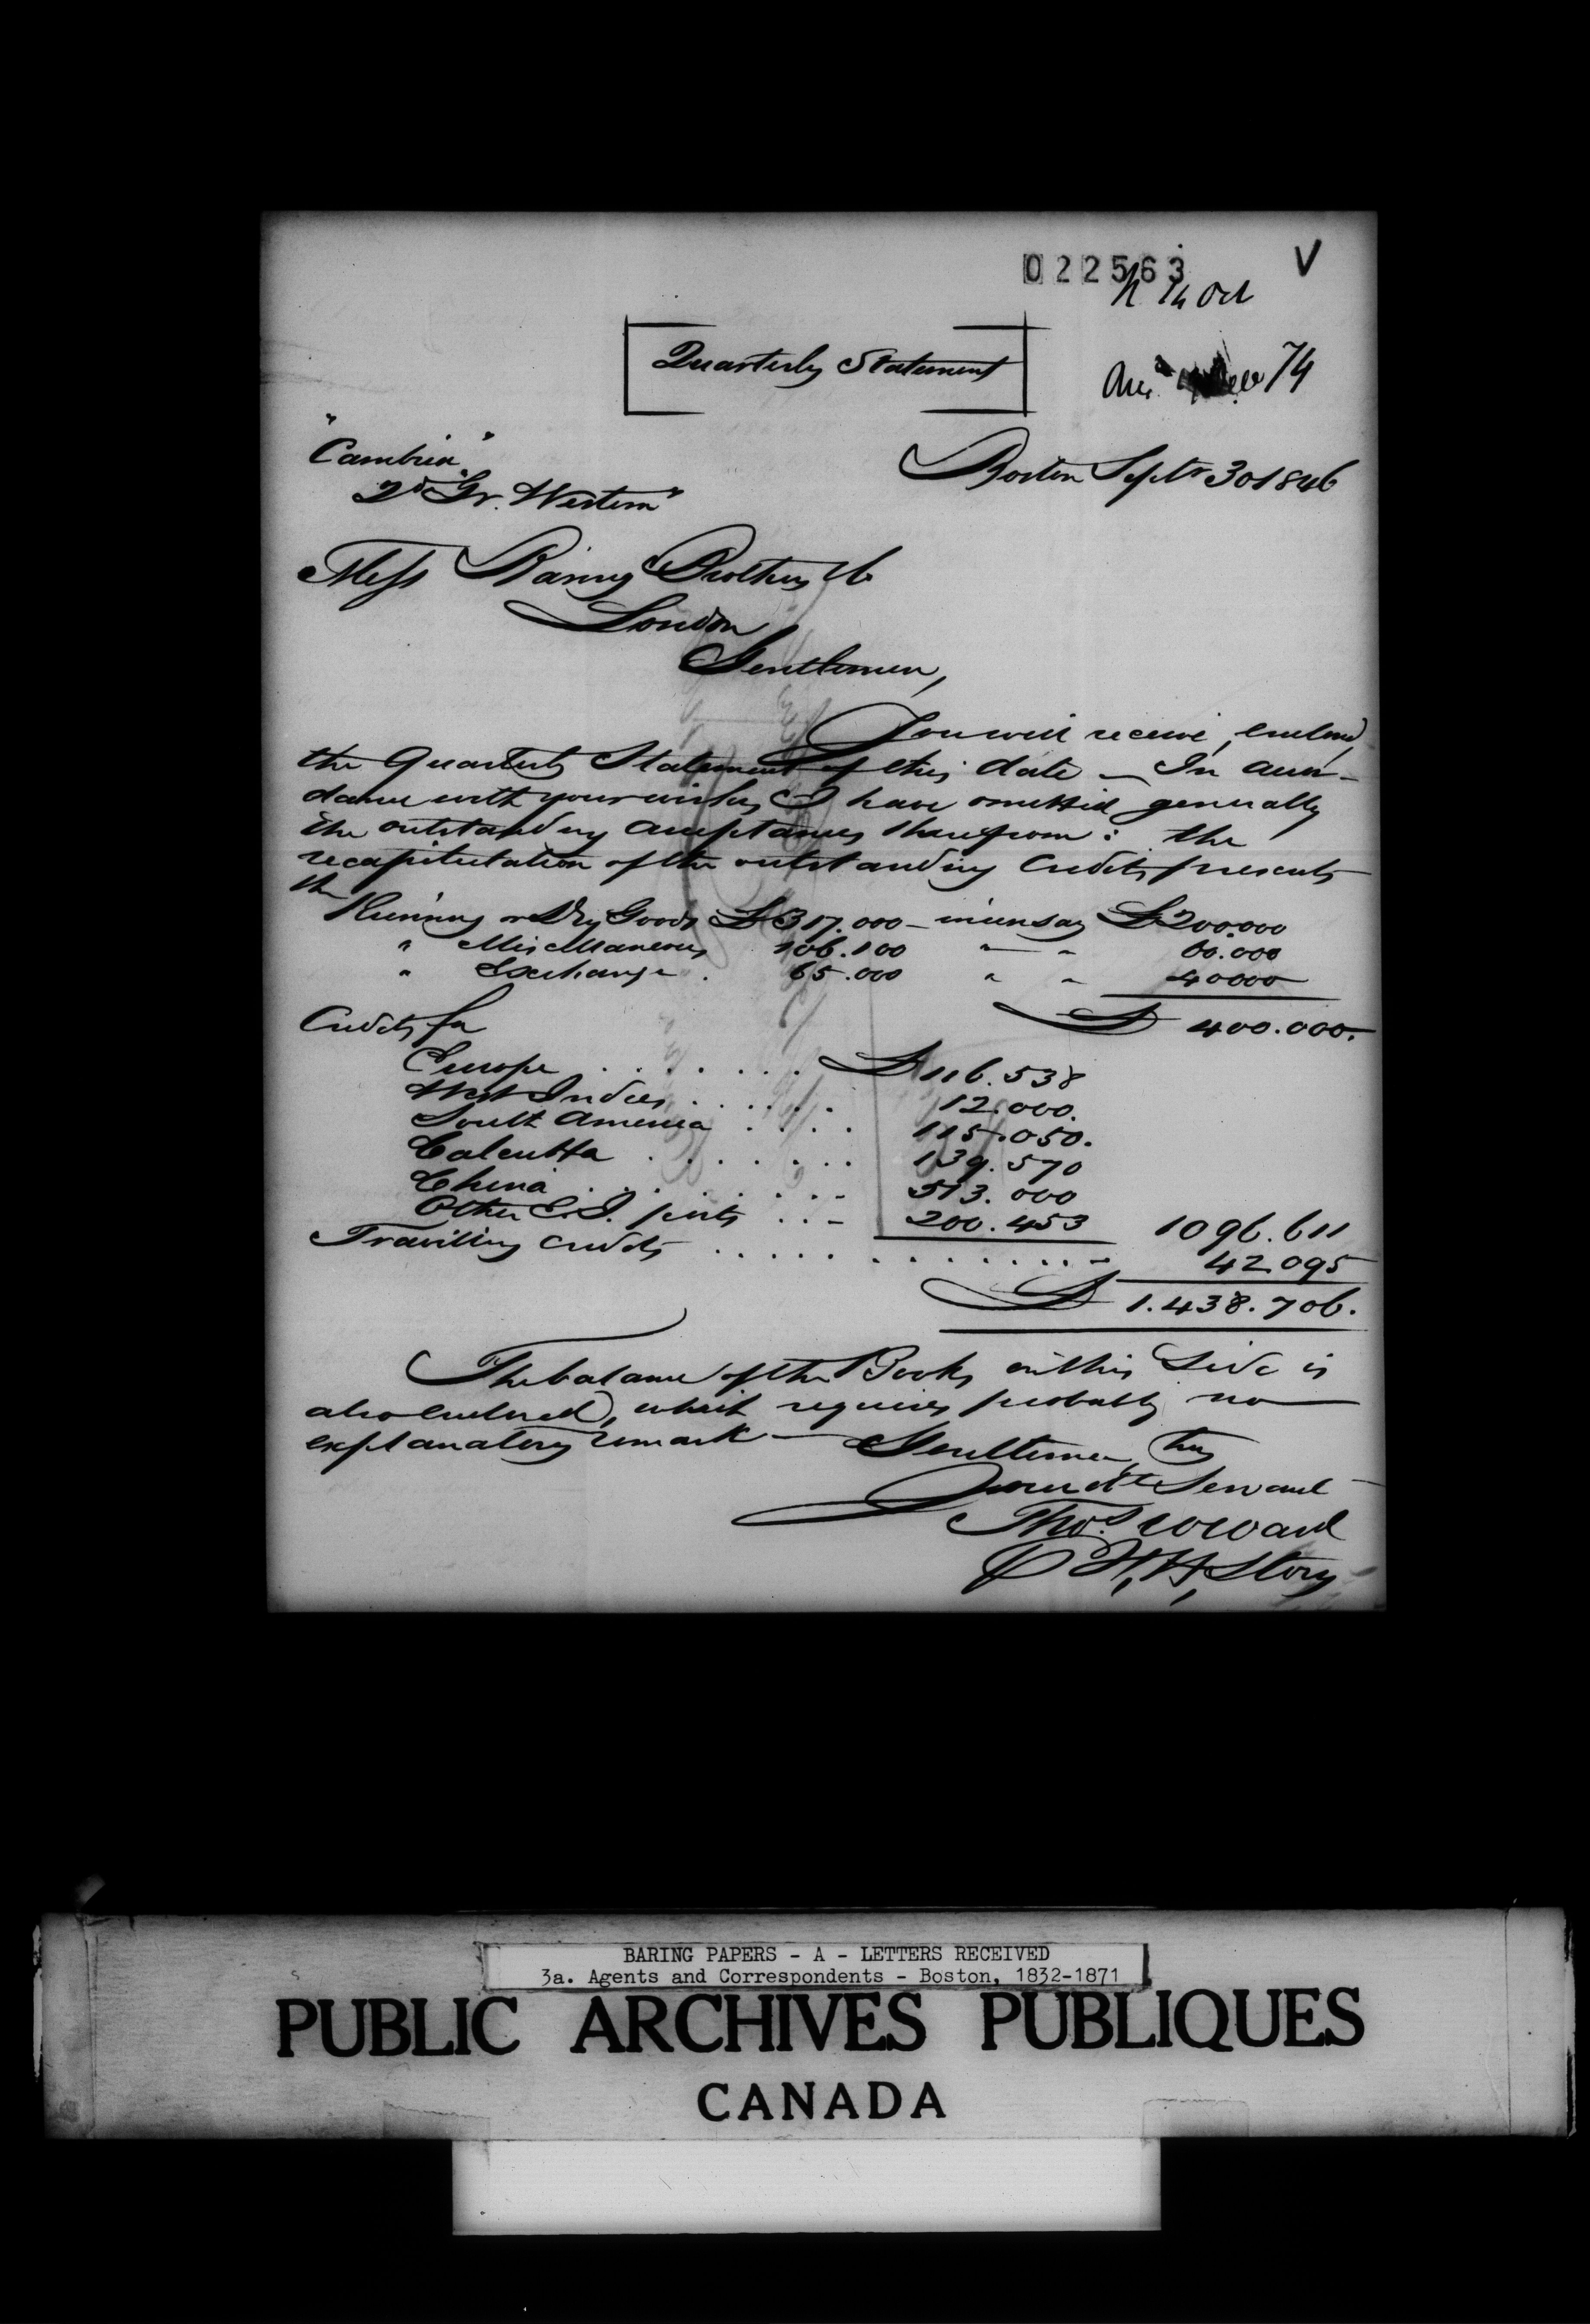 022563
V
R 14 Oct
Quarterly Statement
Ans^d 74
"Cambria"
2^d "Gr. Western"
Boston Sept^r 30 1846
Mess Baring Brothers & Co
London
Gentlemen,
You will receive, enclosed,
the Quarterly Statement of this date — In accor-
dance with your wishes I have omitted generally
the outstanding acceptances therefrom: the
recapitulation of the outstanding Credits presents
the
Running or Dry Goods £317.000 — in use say £200.000
" Miscellaneous 106.100 " " 60.000
" Exchange . 65.000 " " 40000
£ 400.000.
Credits for
Europe . . . . . . . £116.538
West Indies . . . . . . 12.000.
South America . . . . 115.050.
Calcutta . . . . . . . 139.570
China . . . . . . . - 513.000
Other E. I. ports . . - 200.453 1096.611
Travelling Credits . . . . . . . . . . . . - 42.095
£ 1.438.706.
The balance of the Books on this side is
also enclosed, which requires probably no
explanatory remark — Gentlemen,
Your ob^t Servant
Tho^s W Ward
P W. H. Story
BARING PAPERS - A - LETTERS RECEIVED
3a. Agents and Correspondents - Boston, 1832-1871
PUBLIC ARCHIVES PUBLIQUES
CANADA